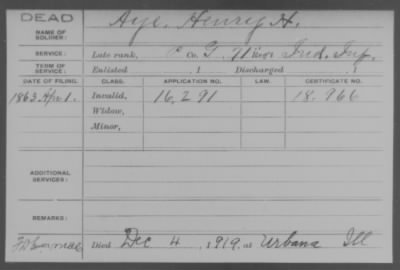 DEAD
NAME OF SOLDIER: Aye, Henry H.
SERVICE: Late rank, P Co. G, 71 Reg't Ind. Inf.
TERM OF SERVICE: Enlisted , 1 Discharged , 1
DATE OF FILING. CLASS. APPLICATION NO. LAW. CERTIFICATE NO.
1863 Apr 1. Invalid, 16,291 18,966
Widow,
Minor,
ADDITIONAL SERVICES:
REMARKS:
Died Dec 4, 1919, at Urbana Ill